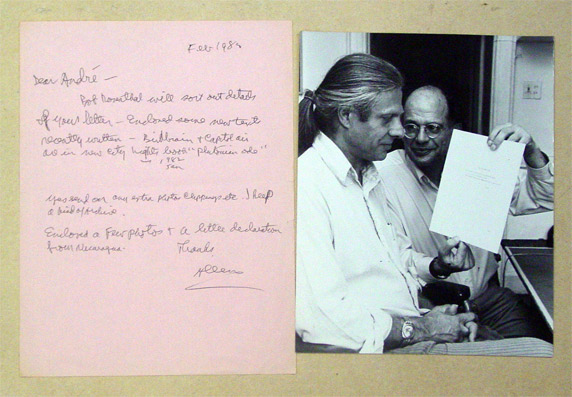 Feb 1982
Dear André —
Bob Rosenthal will sort out details
of your letter — Enclosed some new texts
recently written — Birdbrain & Capitol Air
are in new City Lights book "Plutonian Ode"
in 1982
Jan
Yes send on any extra photos clippings etc. I keep
a kind of archive.
Enclosed a few photos & a little declaration
from Nicaragua.
Thanks
Allen